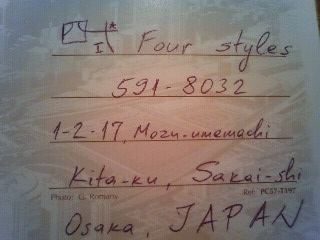 Four styles
591-8032
1-2-17, Mozu-umemachi
Kita-ku, Sakai-shi
Photo: G. Romany Ref: PC57-T197
Osaka, JAPAN